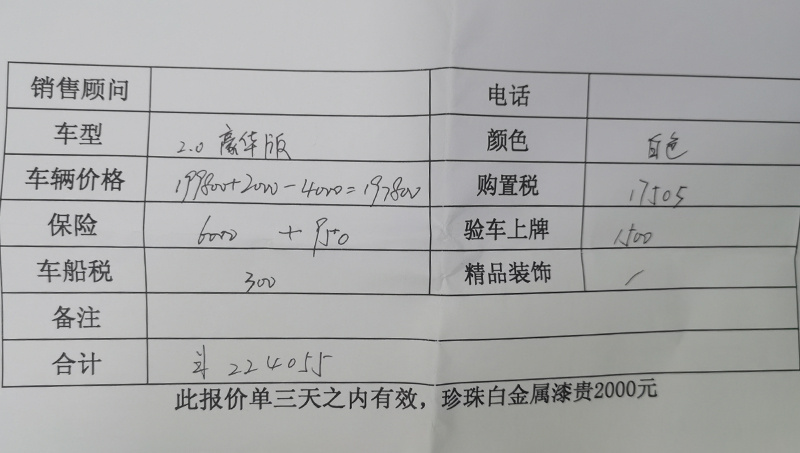 销售顾问 电话
车型 2.0 豪华版 颜色 白色
车辆价格 199800+2000-4000=197800 购置税 17505
保险 6000 + 950 验车上牌 1500
车船税 300 精品装饰 /
备注
合计 224055
此报价单三天之内有效，珍珠白金属漆贵2000元